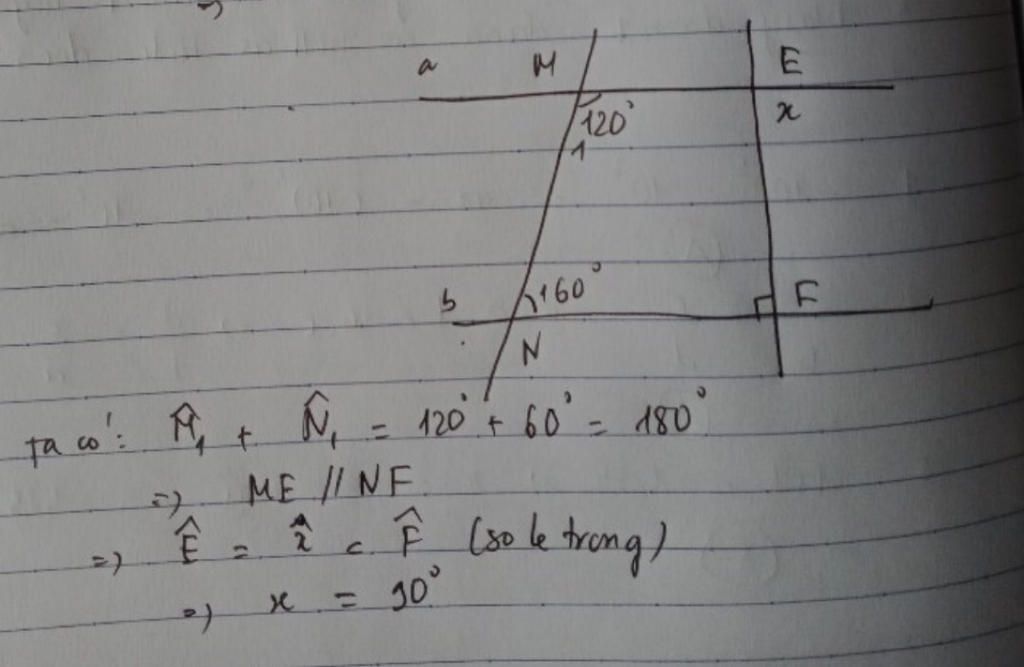 a M E
120° x
1
b 160° F
N
Ta có: M̂₁ + N̂₁ = 120° + 60° = 180°
=) ME // NF
=) Ê = x̂ = F̂ (so le trong)
=) x = 90°